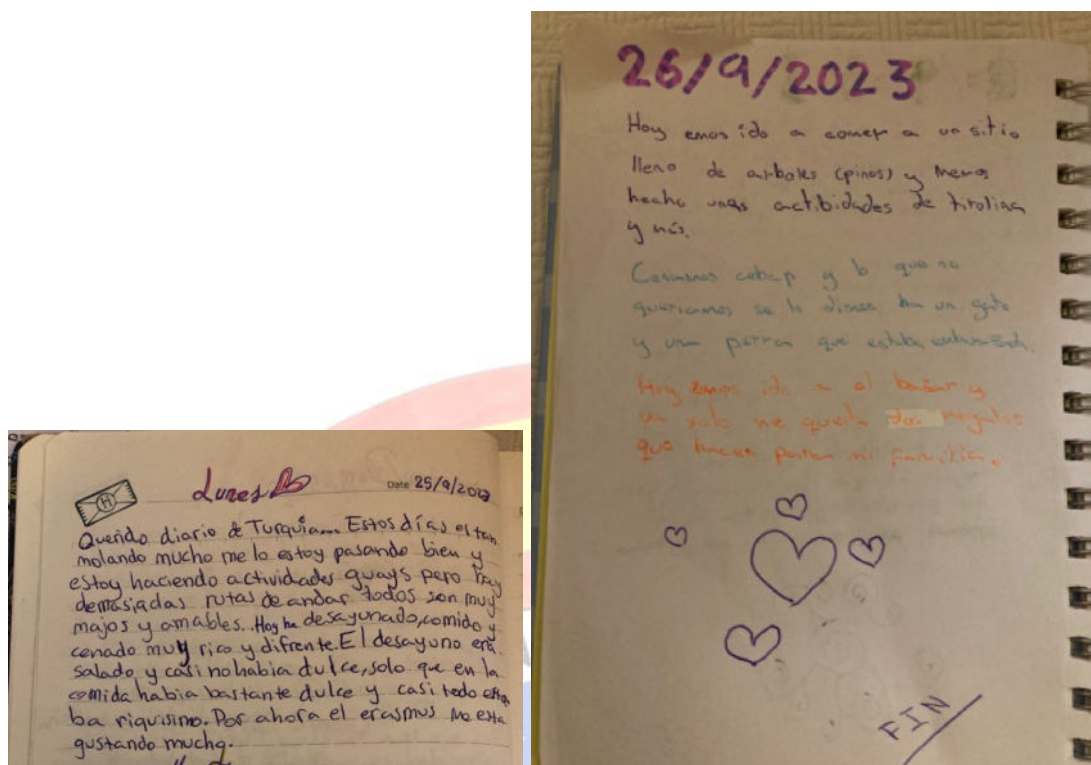 Lunes
Date 25/9/2023
H
Querido diario de Turquia.... Estos días estan
molando mucho me lo estoy pasando bien y
estoy haciendo actividades guays pero hay
demasiadas rutas de andar todos son muy
majos y amables.. Hoy he desayunado, comido y
cenado muy rico y difrente. El desayuno era
salado y casi no habia dulce, solo que en la
comida habia bastante dulce y casi todo esta
ba riquisimo. Por ahora el erasmus me esta
gustando mucho.
26/9/2023
Hoy emos ido a comer a un sitio
lleno de arboles (pinos) y hemos
hecho unas actibidades de tirolina
y más.
Cenamos cebap y lo que no
queriamos se lo dimos ha un gato
y una perra que estaba embarazada.
Hoy emos ido a el bazar y
ya solo me queda dos regalos
que hacer para mi familia.
FIN